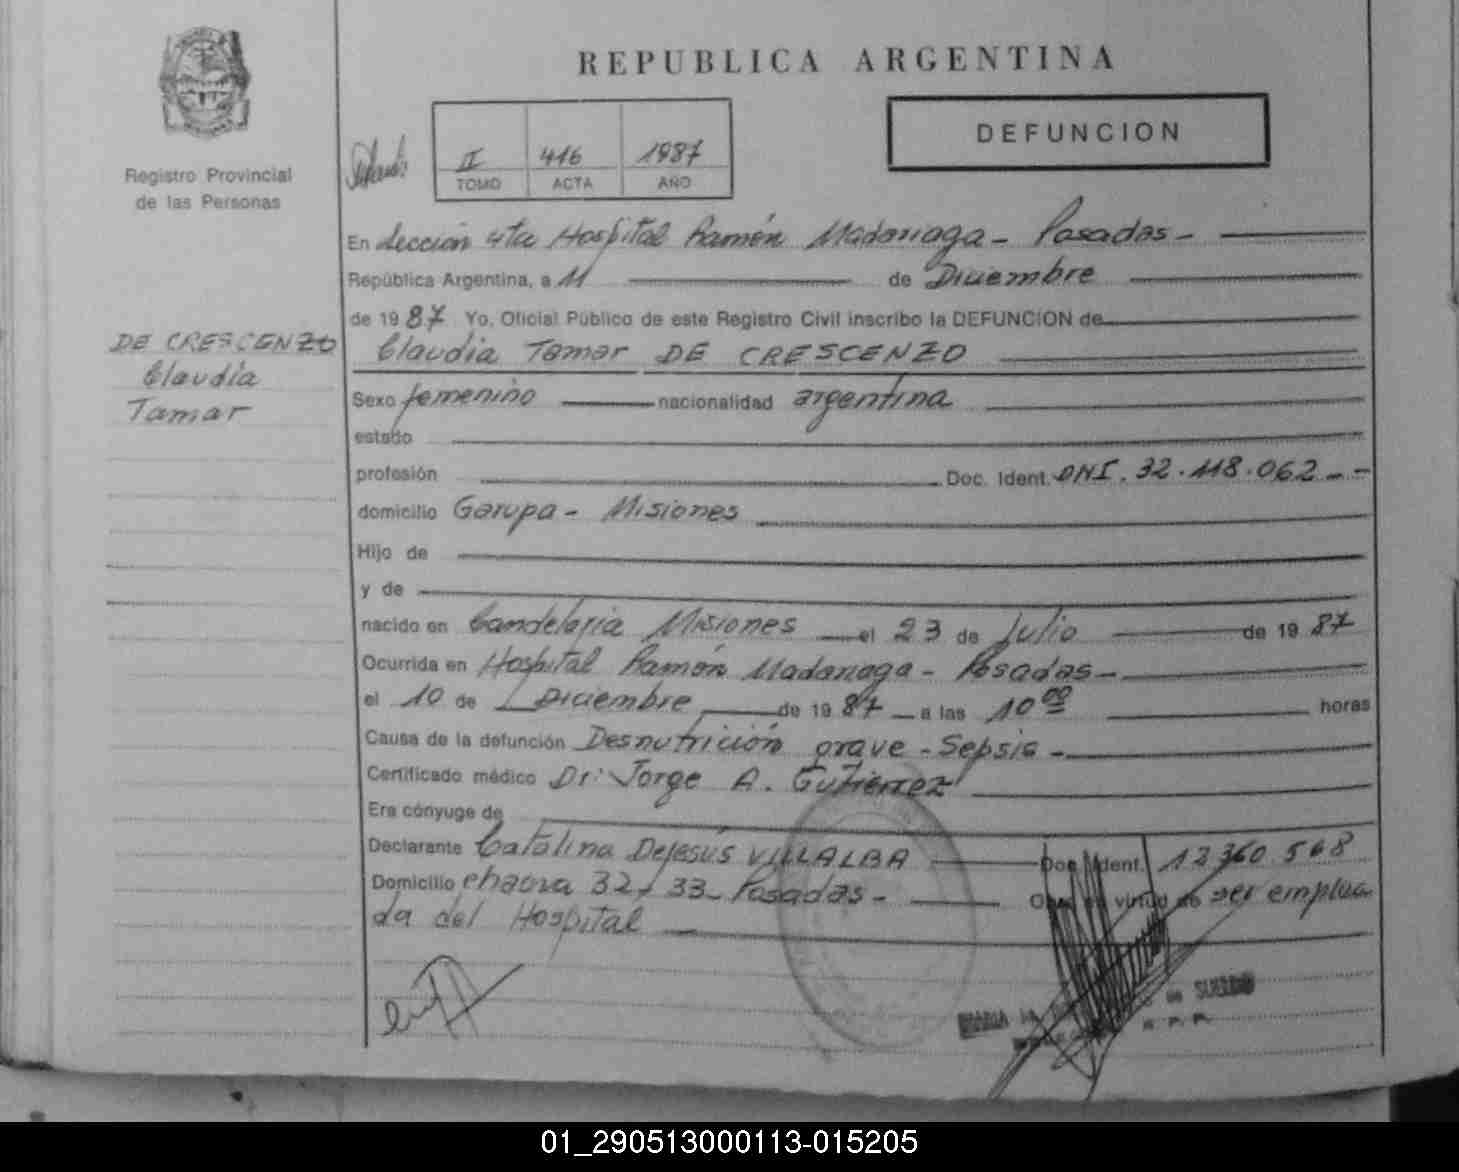 REPUBLICA ARGENTINA
DEFUNCION
II 416 1987
TOMO ACTA AÑO
Registro Provincial
de las Personas
En Sección 4ta Hospital Ramón Madariaga - Posadas -
República Argentina, a 11 de Diciembre
de 1987 Yo, Oficial Público de este Registro Civil inscribo la DEFUNCION de
DE CRESCENZO
Claudia
Tamar
Claudia Tamar DE CRESCENZO
Sexo femenino nacionalidad argentina
estado
profesión Doc. Ident. DNI. 32.118.062 - -
domicilio Garupa - Misiones
Hijo de
y de
nacido en Candelaria Misiones el 23 de Julio de 1987
Ocurrida en Hospital Ramón Madariaga - Posadas -
el 10 de Diciembre de 1987 a las 10 00 horas
Causa de la defunción Desnutrición grave - Sepsis -
Certificado médico Dr: Jorge A. Gutierrez
Era cónyuge de
Declarante Catalina Dejesús VILLALBA Doc. Ident. 12360.568
Domicilio chacra 32 - 33 - Posadas - Obra en virtud de ser emplea
da del Hospital
MARIA DE SUELDO
01_290513000113-015205